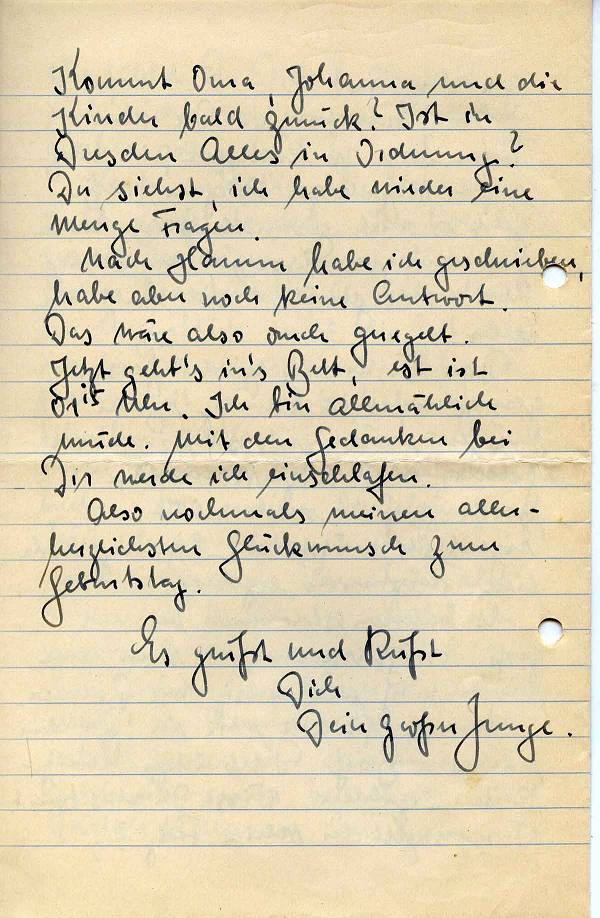 Kommt Oma, Johanna und die
Kinder bald zurück? Ist in
Dresden Alles in Ordnung?
Du siehst, ich habe wieder eine
Menge Fragen.
Nach Hamm habe ich geschrieben,
habe aber noch keine Antwort.
Das wäre also auch geregelt.
Jetzt geht's in's Bett, est ist
01 15 Uhr. Ich bin allmählich
müde. Mit den Gedanken bei
Dir werde ich einschlafen.
Also nochmals meinen aller-
herzlichsten Glückwunsch zum
Geburtstag.
Es grüßt und Küßt
Dich
Dein großer Junge.